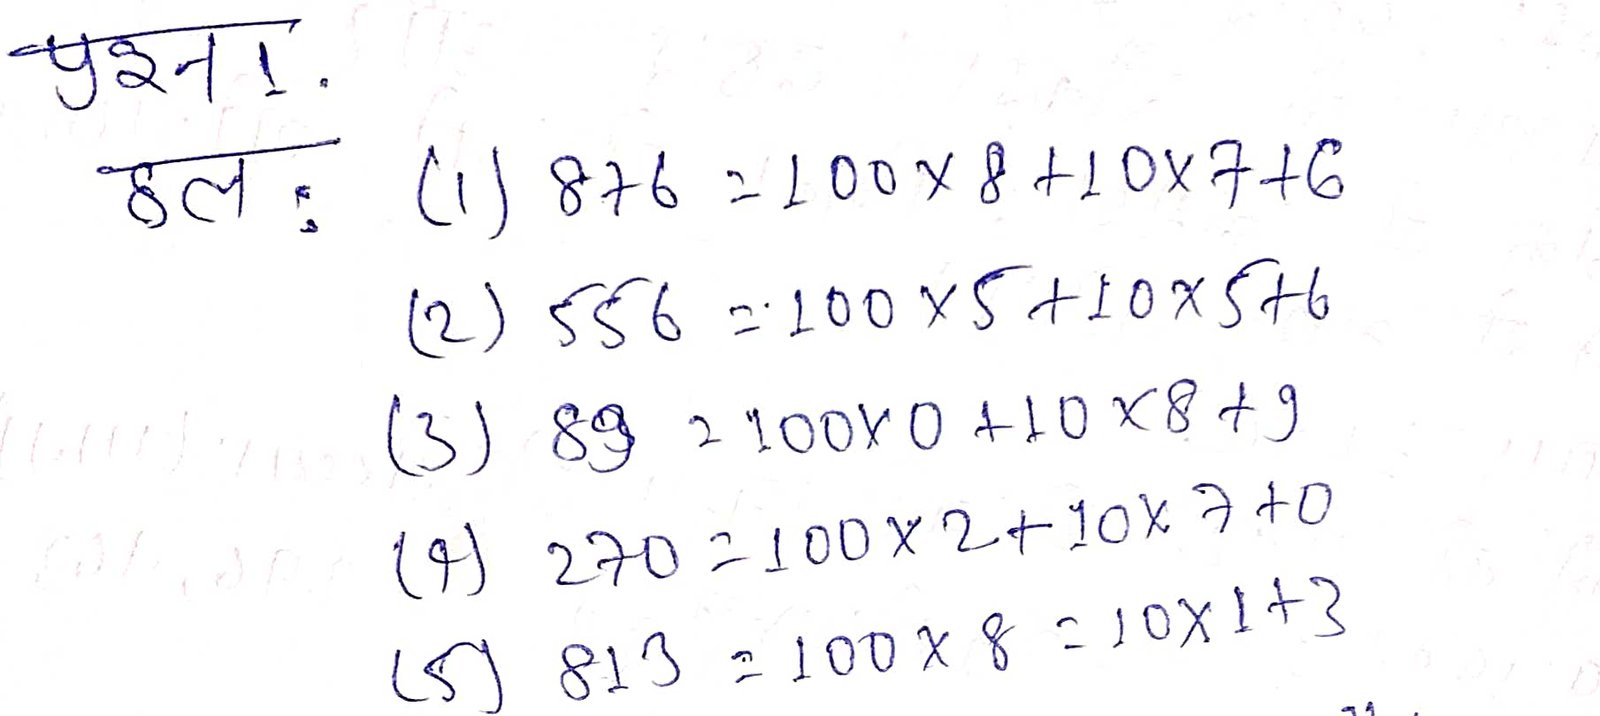 प्रश्न 1.
हल : (1) 876 = 100 × 8 + 10 × 7 + 6
(2) 556 = 100 × 5 + 10 × 5 + 6
(3) 89 = 100 × 0 + 10 × 8 + 9
(4) 270 = 100 × 2 + 10 × 7 + 0
(5) 813 = 100 × 8 = 10 × 1 + 3